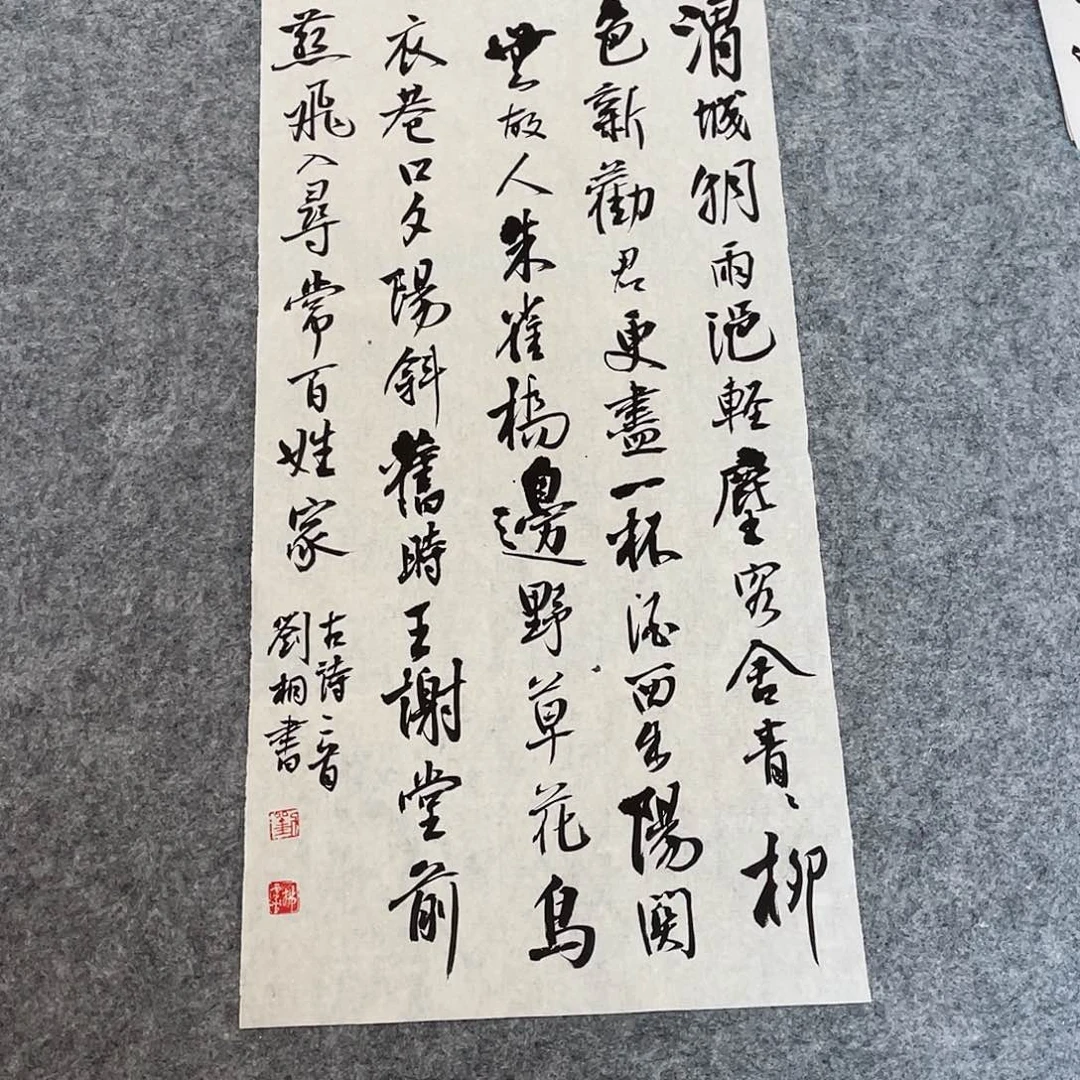 渭城朝雨浥輕塵客舍青〻柳
色新勸君更盡一杯酒西出陽關
無故人朱雀橋邊野草花烏
衣巷口夕陽斜舊時王謝堂前
燕飛入尋常百姓家
古詩二首
劉桐書